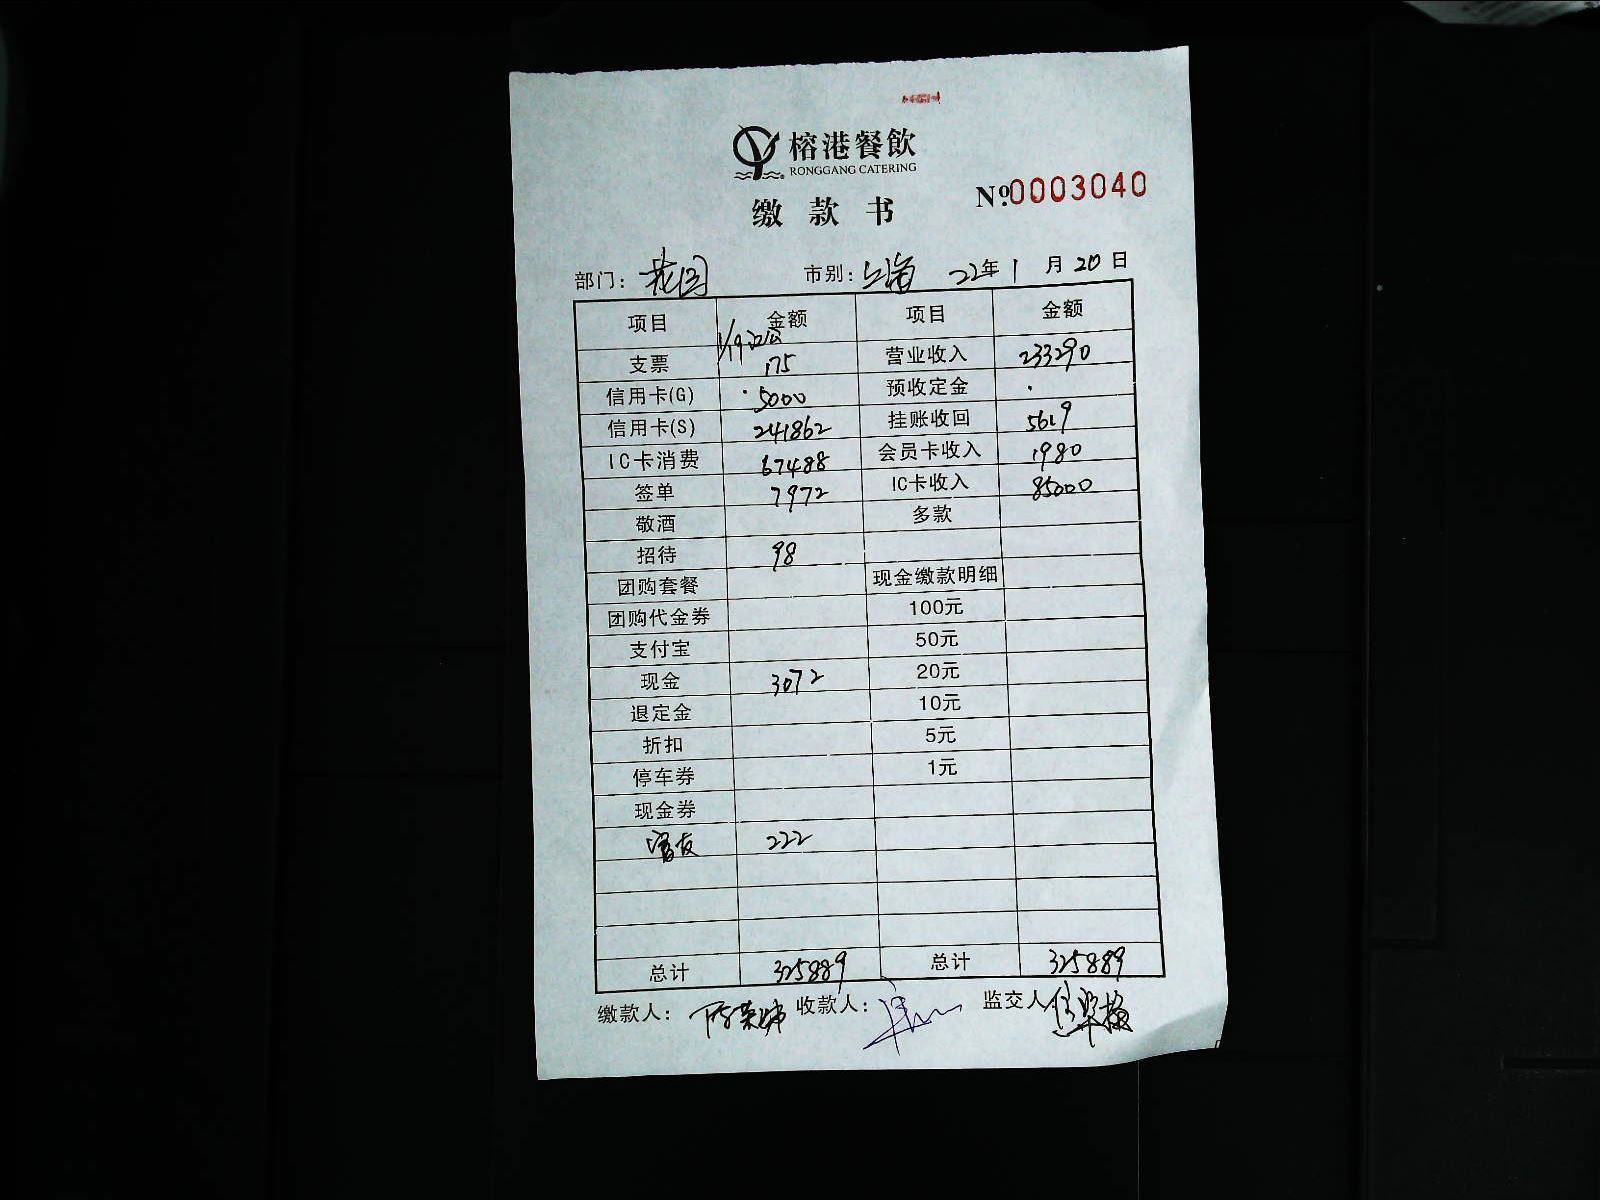 榕港餐飲
RONGGANG CATERING
缴款书 №0003040
部门: 花园 市别: 上海 22年1月20日
项目 金额 项目 金额
支票 175 营业收入 233290
信用卡(G) 5000 预收定金
信用卡(S) 241862 挂账收回 5619
IC卡消费 67488 会员卡收入 1980
签单 7972 IC卡收入 85000
敬酒 多款
招待 98
团购套餐 现金缴款明细
团购代金券 100元
支付宝 50元
现金 3072 20元
退定金 10元
折扣 5元
停车券 1元
现金券
222
总计 325889 总计 325889
缴款人: 收款人: 监交人